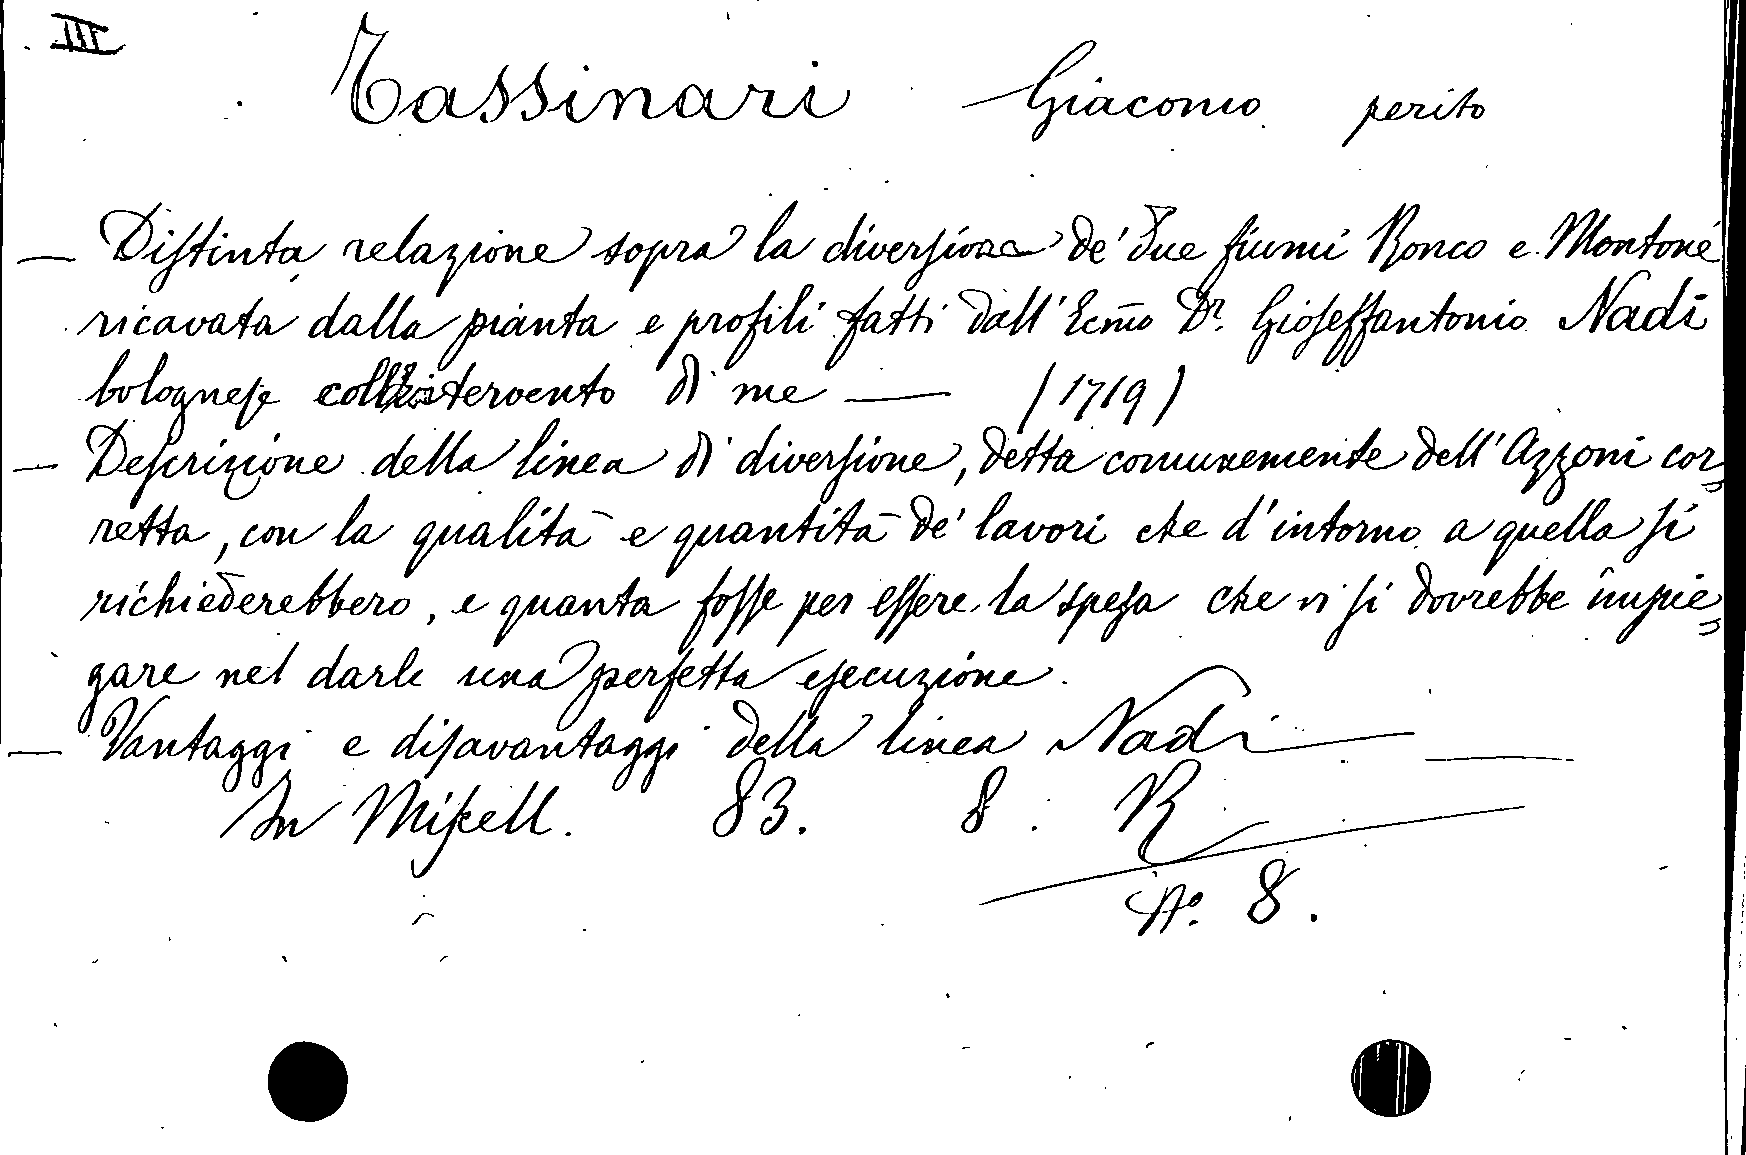 III
Tassinari Giacomo perito
— Distinta relazione sopra la diversione de' due fiumi Ronco e Montone
ricavata dalla pianta e profili fatti dall' Ecm̃o Dr. Gioseffantonio Nadi
bolognese coll'intervento di me — (1719)
— Descrizione della linea di diversione, detta comunemente dell' Azzoni cor„
retta, con la qualità e quantità de' lavori che d'intorno a quella si
richiederebbero, e quanta fosse per essere la spesa che vi si dovrebbe impie„
gare nel darle una perfetta esecuzione.
— Vantaggi e disavantaggi della linea Nadi — —
In Miscell. 83. 8. R
No. 8.